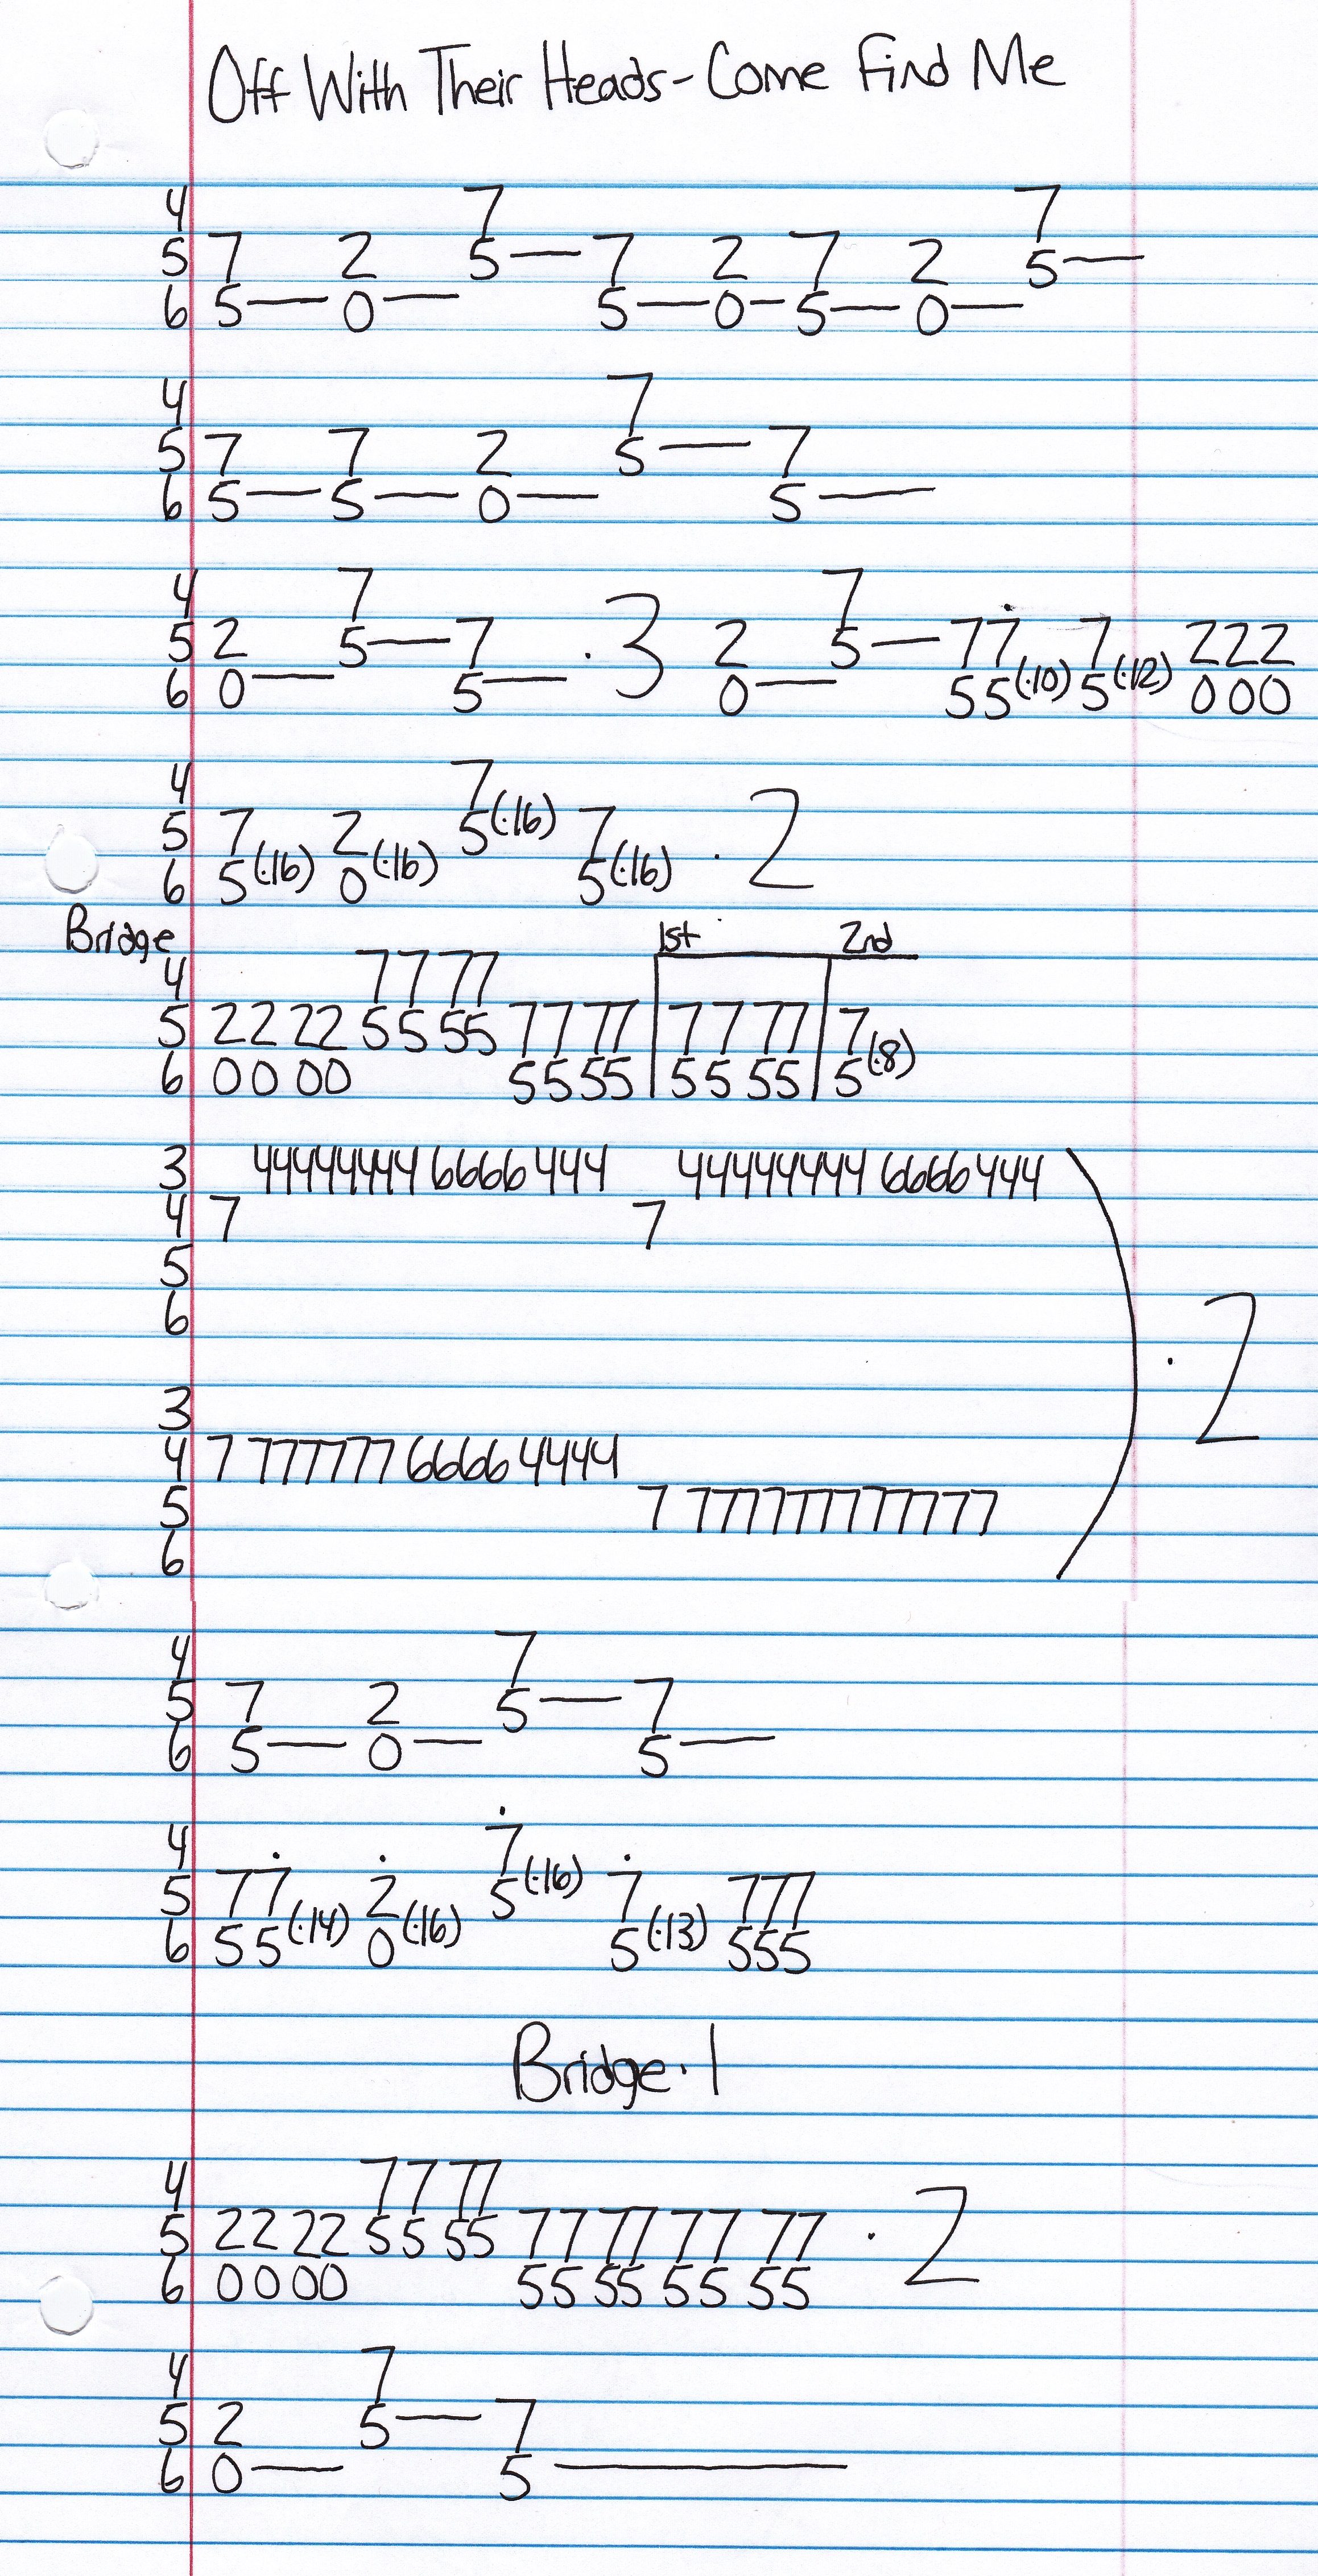 Off With Their Heads - Come Find Me
4 7 7
5 7 2 5— 7 2 7 2 5—
6 5— 0— 5— 0— 5— 0—
4 7
5 7 7 2 5— 7
6 5— 5— 0— 5—
4 7 7
5 2 5— 7 · 3 2 5— 7 7̇ 7 2 2 2
6 0— 5— 0— 5 5(·10) 5(·12) 0 0 0
4 7
5 7 2 5(·16) 7 · 2
6 5(·16) 0(·16) 5(·16)
Bridge 1st 2nd
4 7 7 7 7
5 2 2 2 2 5 5 5 5 7 7 7 7 7 7 7 7 7
6 0 0 0 0 5 5 5 5 5 5 5 5 5(·8)
3 44444444 6666 444 44444444 6666 444
4 7 7
5
6
· 2
3
4 7 777777 6666 4444
5 7 77777777777
6
4 7
5 7 2 5— 7
6 5— 0— 5—
4 7̇
5 7 7̇ 2̇ 5(·16) 7̇ 7 7 7
6 5 5(·14) 0(·16) 5(·13) 5 5 5
Bridge · 1
4 7 7 7 7
5 2 2 2 2 5 5 5 5 7 7 7 7 7 7 7 7 · 2
6 0 0 0 0 5 5 5 5 5 5 5 5
4 7
5 2 5— 7
6 0— 5—